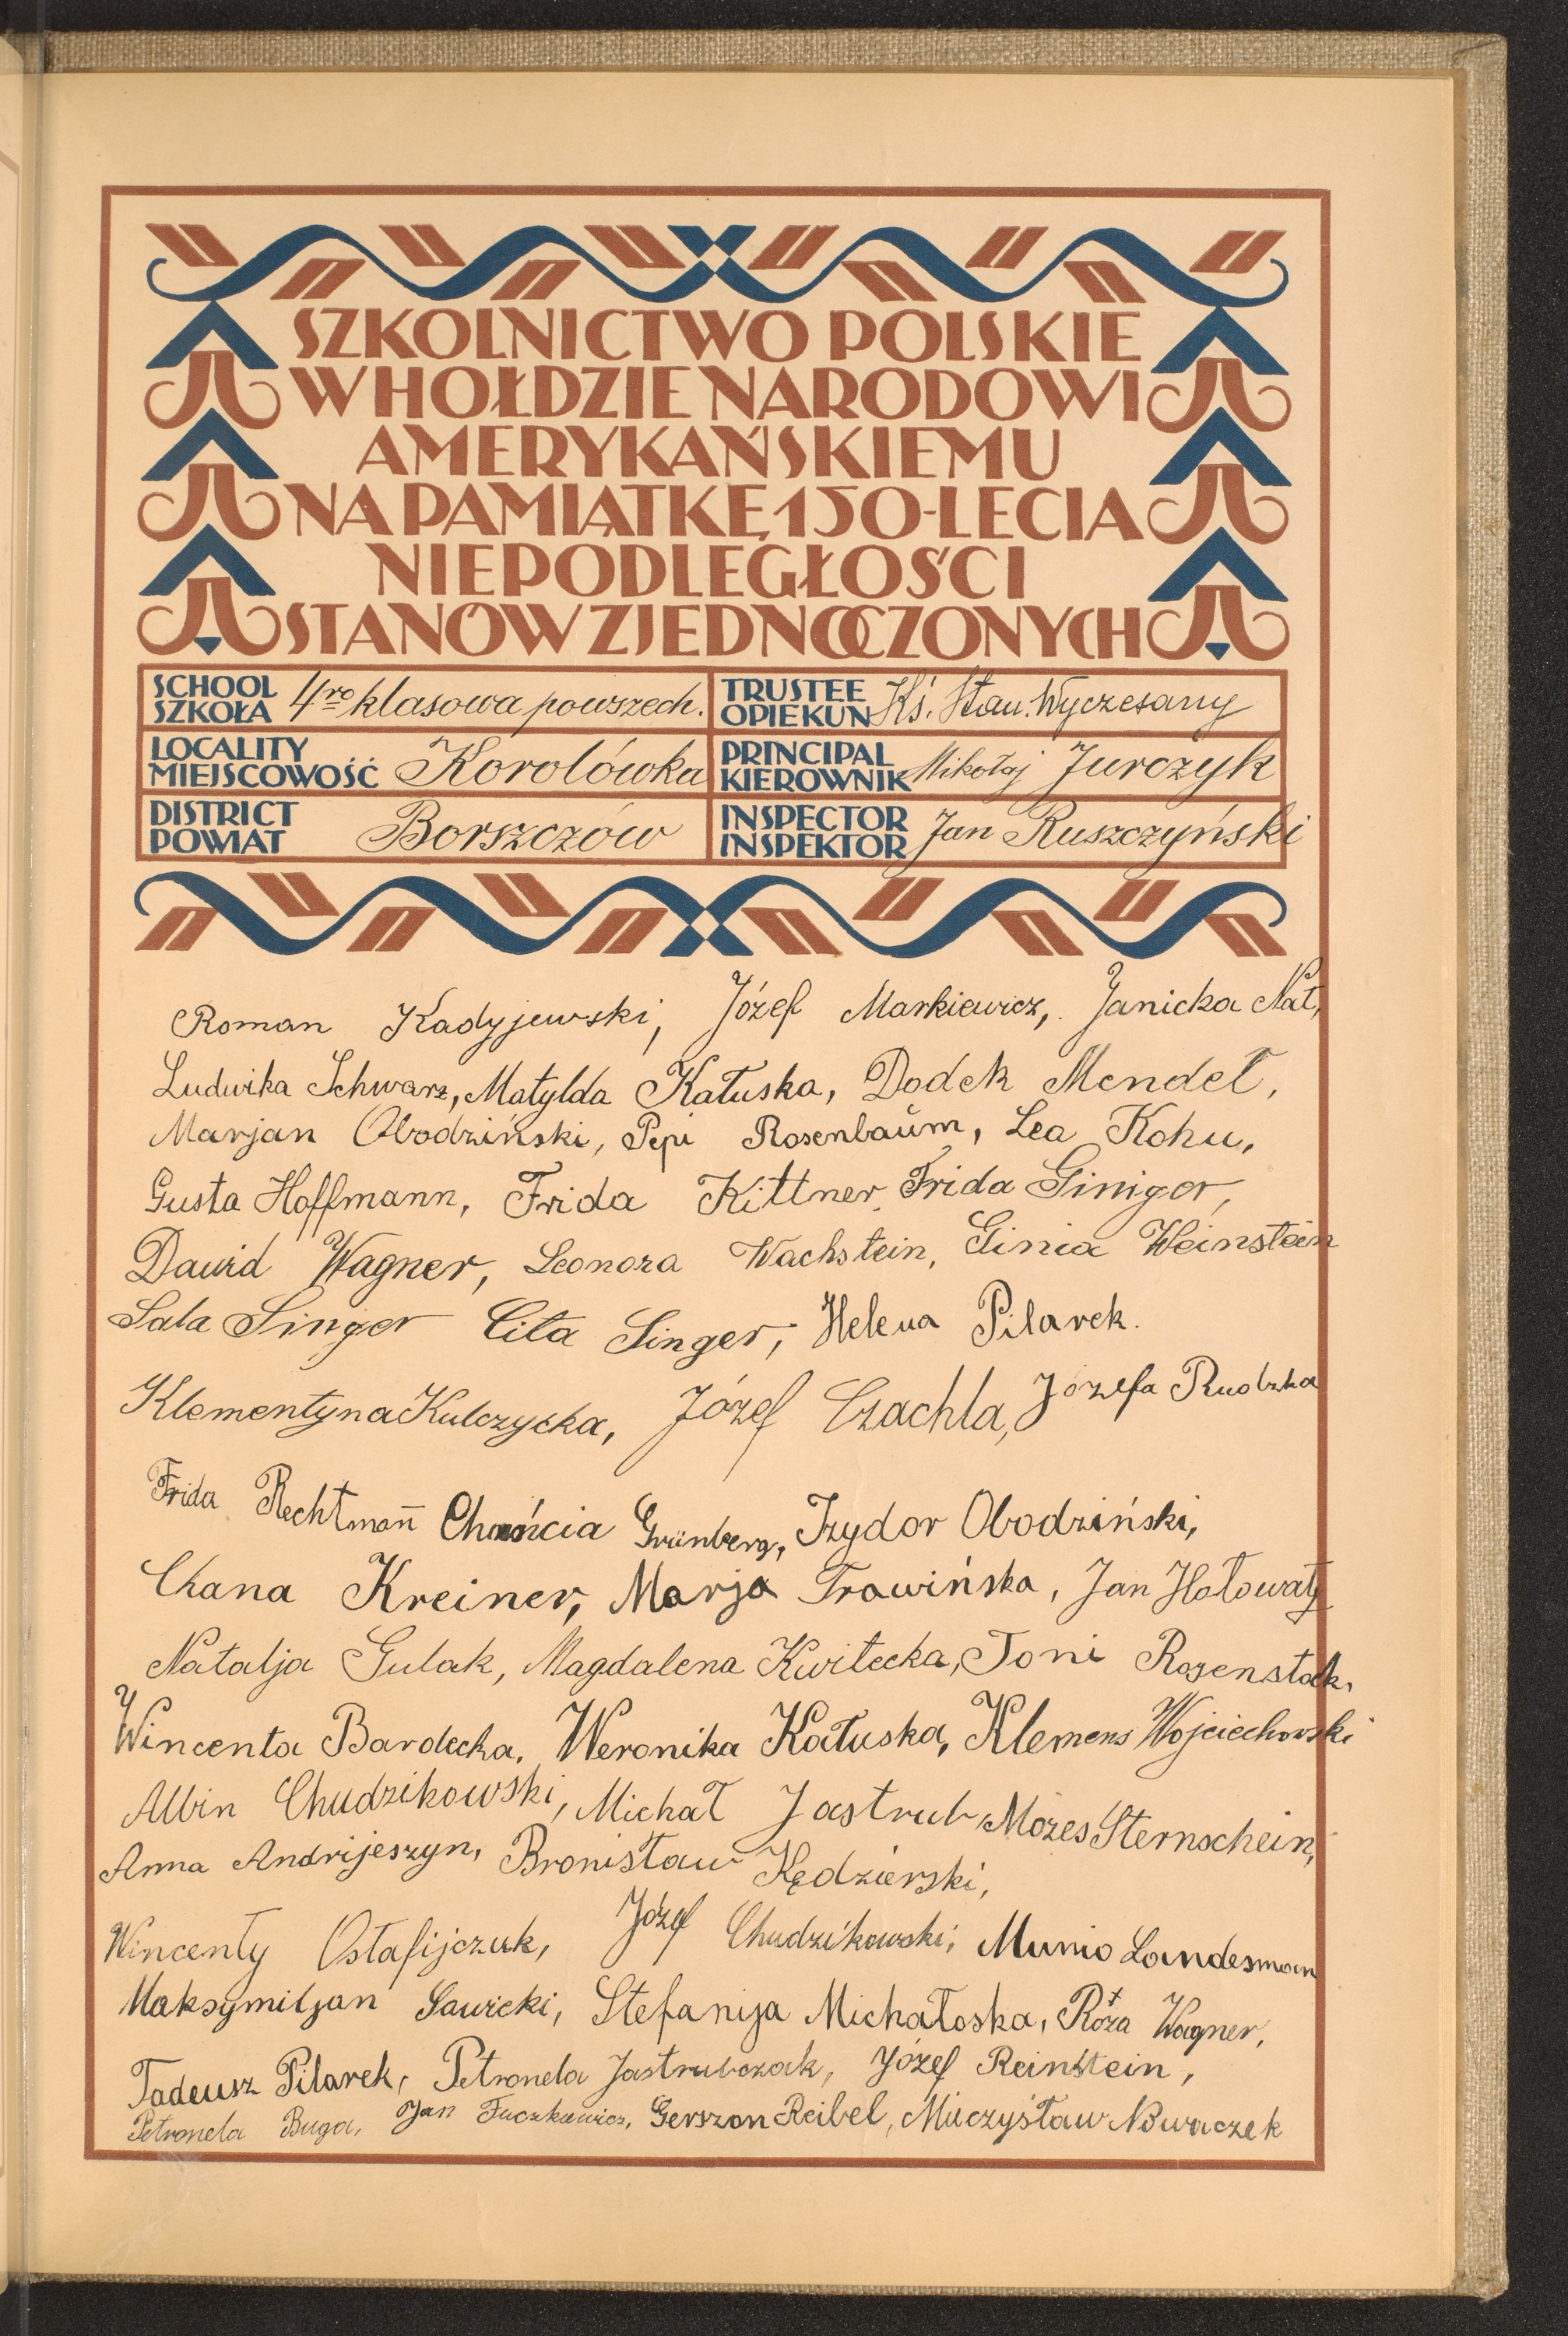 SZKOLNICTWO POLSKIE
W HOŁDZIE NARODOWI
AMERYKAŃSKIEMU
NA PAMIĄTKĘ 150-LECIA
NIEPODLEGŁOŚCI
STANÓW ZJEDNOCZONYCH
SCHOOL SZKOŁA 4ro klasowa powszech. TRUSTEE OPIEKUN Ks. Stan. Wyczesany
LOCALITY MIEJSCOWOŚĆ Korolówka PRINCIPAL KIEROWNIK Mikołaj Jurczyk
DISTRICT POWIAT Borszczów INSPECTOR INSPEKTOR Jan Ruszczyński
Roman Kadyjewski, Józef Markiewicz, Janicka Nat,
Ludwika Schwarz, Matylda Kałuska, Dodek Mendel,
Marjan Obodziński, Pepi Rosenbaŭm, Lea Kohn,
Gusta Hoffmann, Frida Kittner, Frida Giniger,
Dawid Wagner, Leonora Wachstein, Ginia Weinstein
Sala Singer Cila Singer, Helena Pilarek.
Klementyna Kulczycka, Józef Czachla, Józefa Rudzka
Frida Rechtman̄ Chańcia Grünberg, Izydor Obodziński,
Chana Kreiner, Marja Trawińska, Jan Hołowaty
Natalja Gulak, Magdalena Kwitecka, Toni Rosenstok.
Wincenta Bardecka, Weronika Kałuska, Klemens Wojciechowski
Albin Chudzikowski, Michał Jastrub, Mozes Sternschein,
Anna Andrijeszyn, Bronisław Kędzierski,
Wincenty Ostafijczuk, Józef Chudzikowski, Munio Landesman
Maksymiljan Sawicki, Stefanija Michałoska, Róża Wagner,
Tadeusz Pilarek, Petronela Jastrubczak, Józef Reinstein,
Petronela Buga, Jan Fuczkiewicz, Gerszon Reibel, Mieczysław Nowaczek